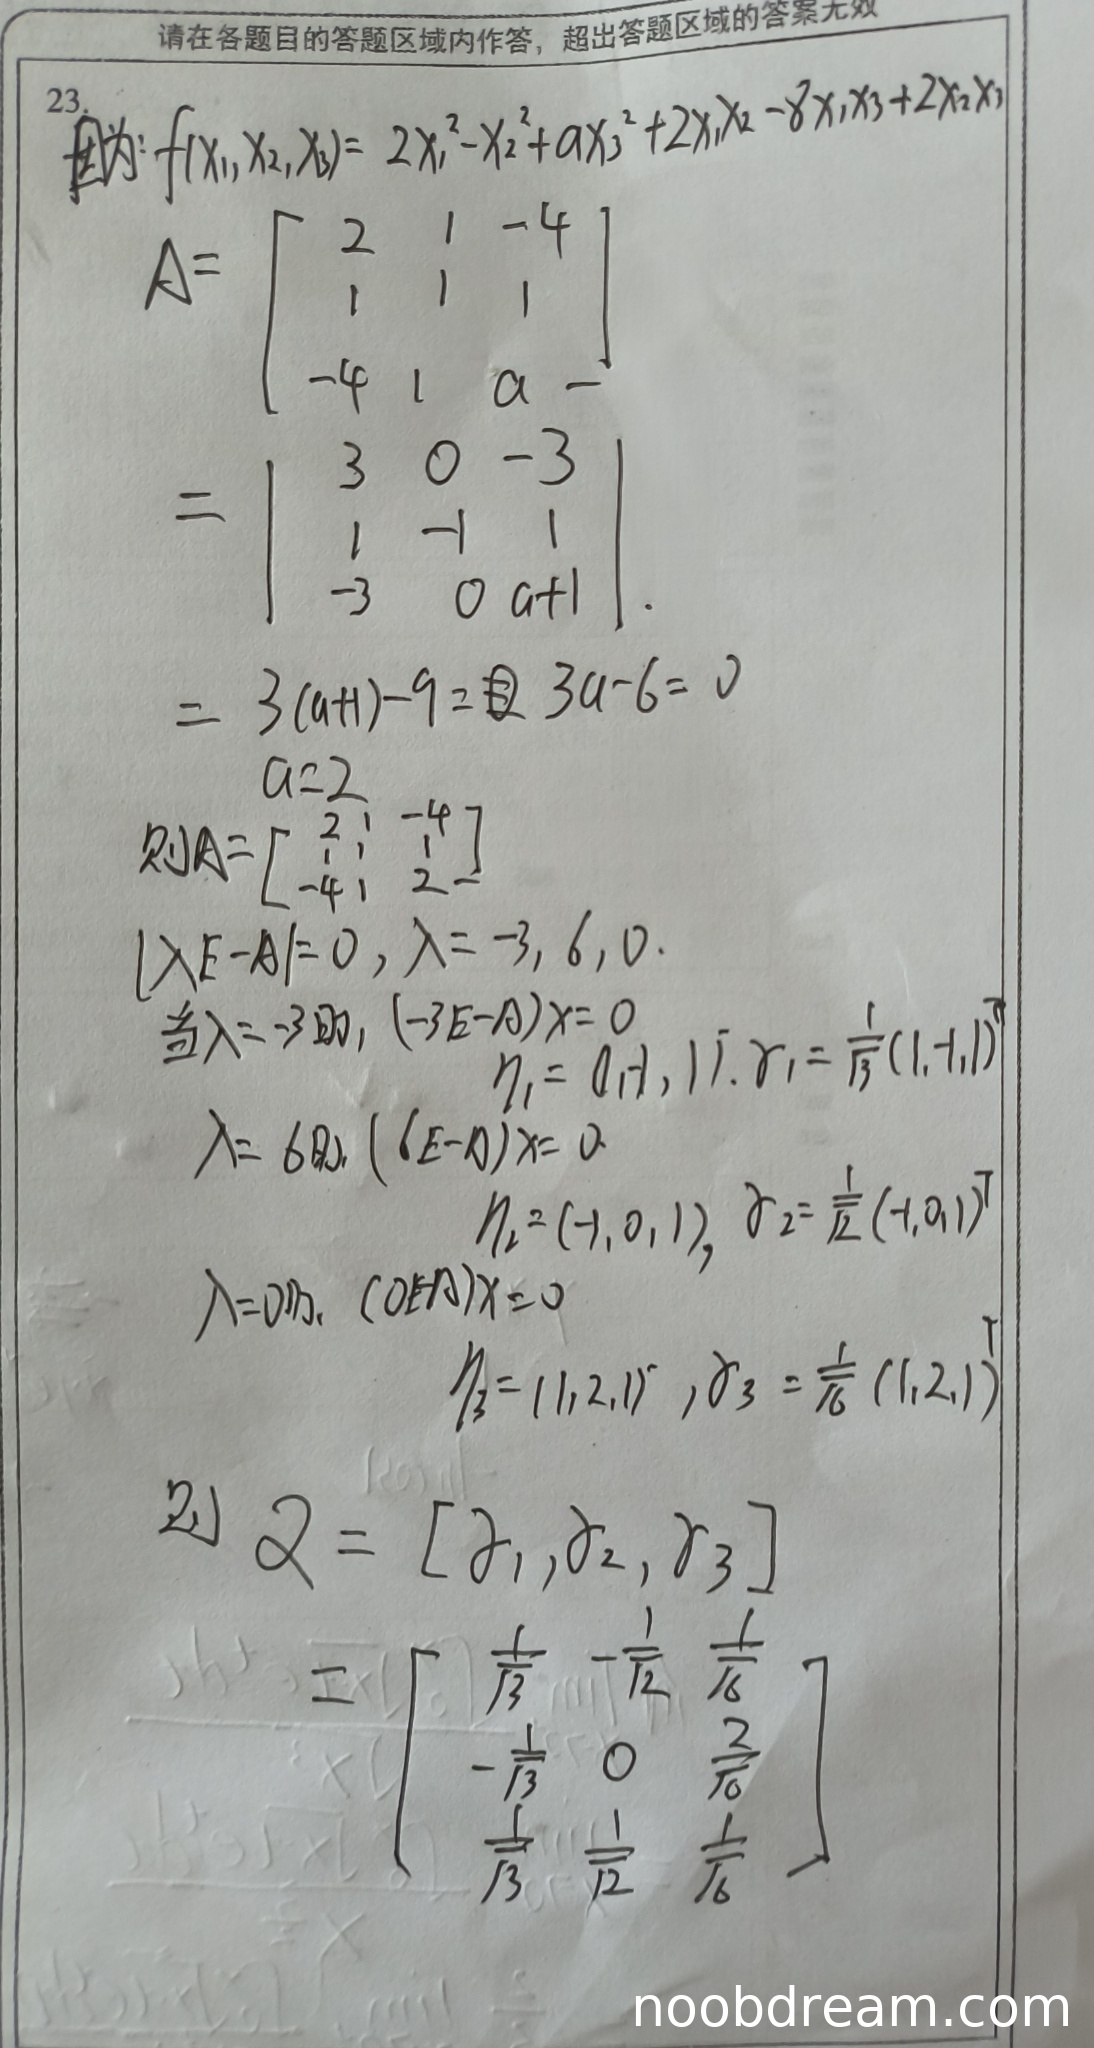 请在各题目的答题区域内作答，超出答题区域的答案无效
23.
因为: f(x₁, x₂, x₃) = 2x₁² - x₂² + ax₃² + 2x₁x₂ - 8x₁x₃ + 2x₂x₃
A = [ 2 1 -4
1 1 1
-4 1 a - ]
= | 3 0 -3
1 -1 1
-3 0 a+1 | .
= 3(a+1) - 9 = 3a - 6 = 0
a = 2
则 A = [ 2 1 -4
1 1 1
-4 1 2 - ]
|λE - A| = 0 , λ = -3, 6, 0.
当λ = -3时, (-3E - A)x = 0
η₁ = (1, -1, 1)ᵀ. γ₁ = 1/√3 (1, -1, 1)ᵀ
λ = 6时. (6E - A)x = 0
η₂ = (-1, 0, 1), γ₂ = 1/√2 (-1, 0, 1)ᵀ
λ = 0时. (0E-A)x = 0
η₃ = (1, 2, 1)ᵀ , γ₃ = 1/√6 (1, 2, 1)ᵀ
则 Q = [γ₁, γ₂, γ₃]
= [ 1/√3 -1/√2 1/√6
-1/√3 0 2/√6
1/√3 1/√2 1/√6 ]
noobdream.com